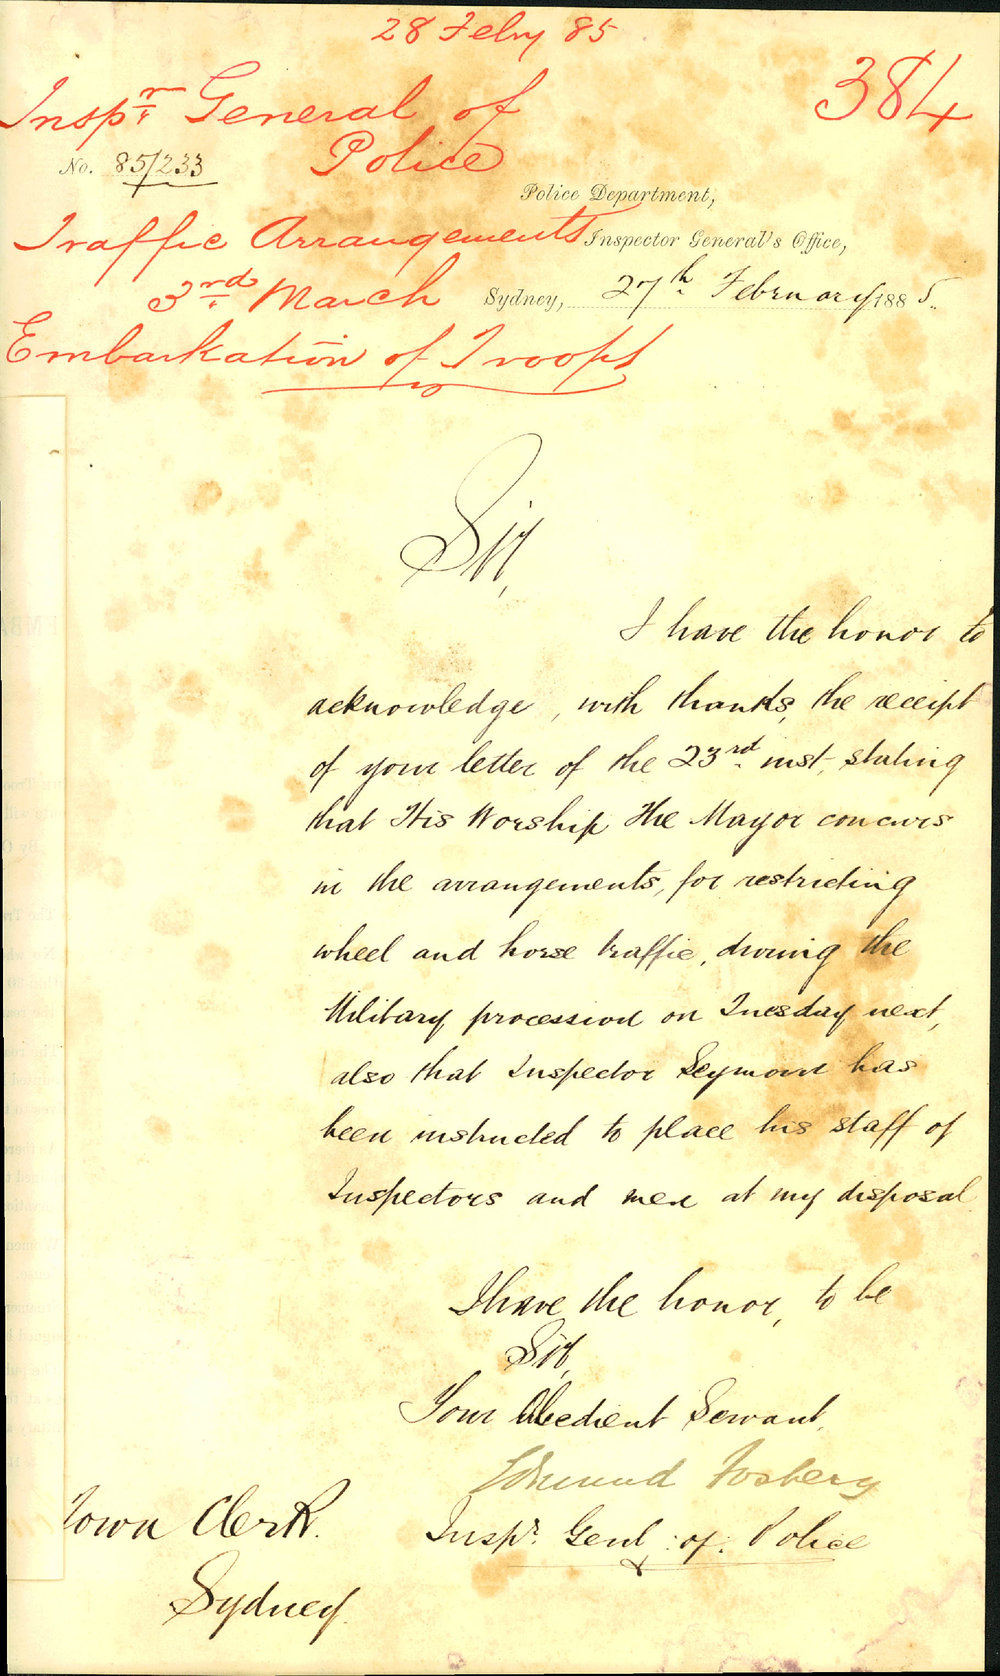 28 Feby 85
384
Inspr General of
Police
No. 85/233
Police Department,
Traffic Arrangements
Inspector General's Office,
3rd March
Sydney, 27th February 1885.
Embarkation of Troops
Sir,
I have the honor to
acknowledge, with thanks, the receipt
of your letter of the 23rd inst, stating
that His Worship The Mayor concurs
in the arrangements, for restricting
wheel and horse traffic, during the
Military procession on Tuesday next,
also that Inspector Seymour has
been instructed to place his staff of
Inspectors and men at my disposal
I have the honor, to be
Sir,
Your Obedient Servant,
Edmund Fosbery
Inspr. Genl. of. Police
Town Clerk.
Sydney.